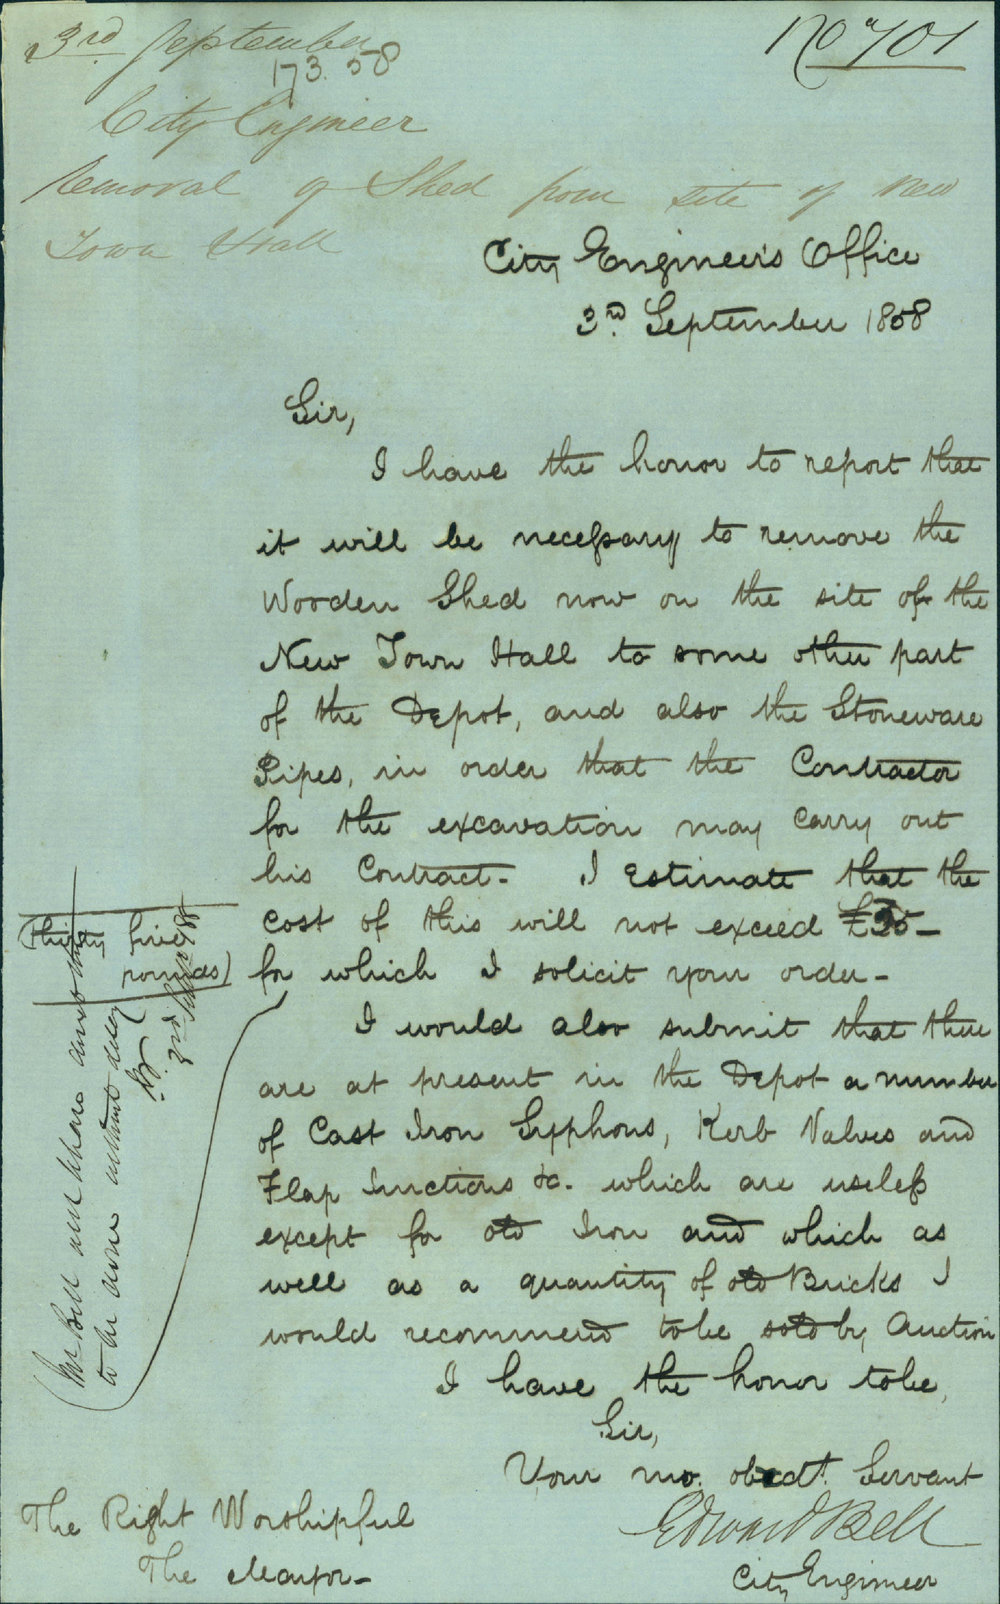 3rd September
173.58
No 701
City Engineer
Removal of Shed from site of New
Town Hall
City Engineer's Office
3rd September 1858
Sir,
I have the honor to report that
it will be necessary to remove the
Wooden Shed now on the site of the
New Town Hall to some other part
of the Depot, and also the Stoneware
Pipes, in order that the Contractor
for the excavation may carry out
his Contract - I Estimate that the
cost of this will not exceed £35 -
for which I solicit your order -
(thirty five
pounds)
I would also submit that there
are at present in the Depot a number
of Cast Iron Syphons, Kerb Valves and
Flap Junctions &c. which are useless
except for old Iron and which as
well as a quantity of old Bricks I
would recommend to be sold by Auction
I have the honor to be,
Sir,
Your mo. obedt. Servant
Edward Bell
City Engineer
The Right Worshipful
The Mayor -
(Mr Bell will please
to be done without delay
3rd